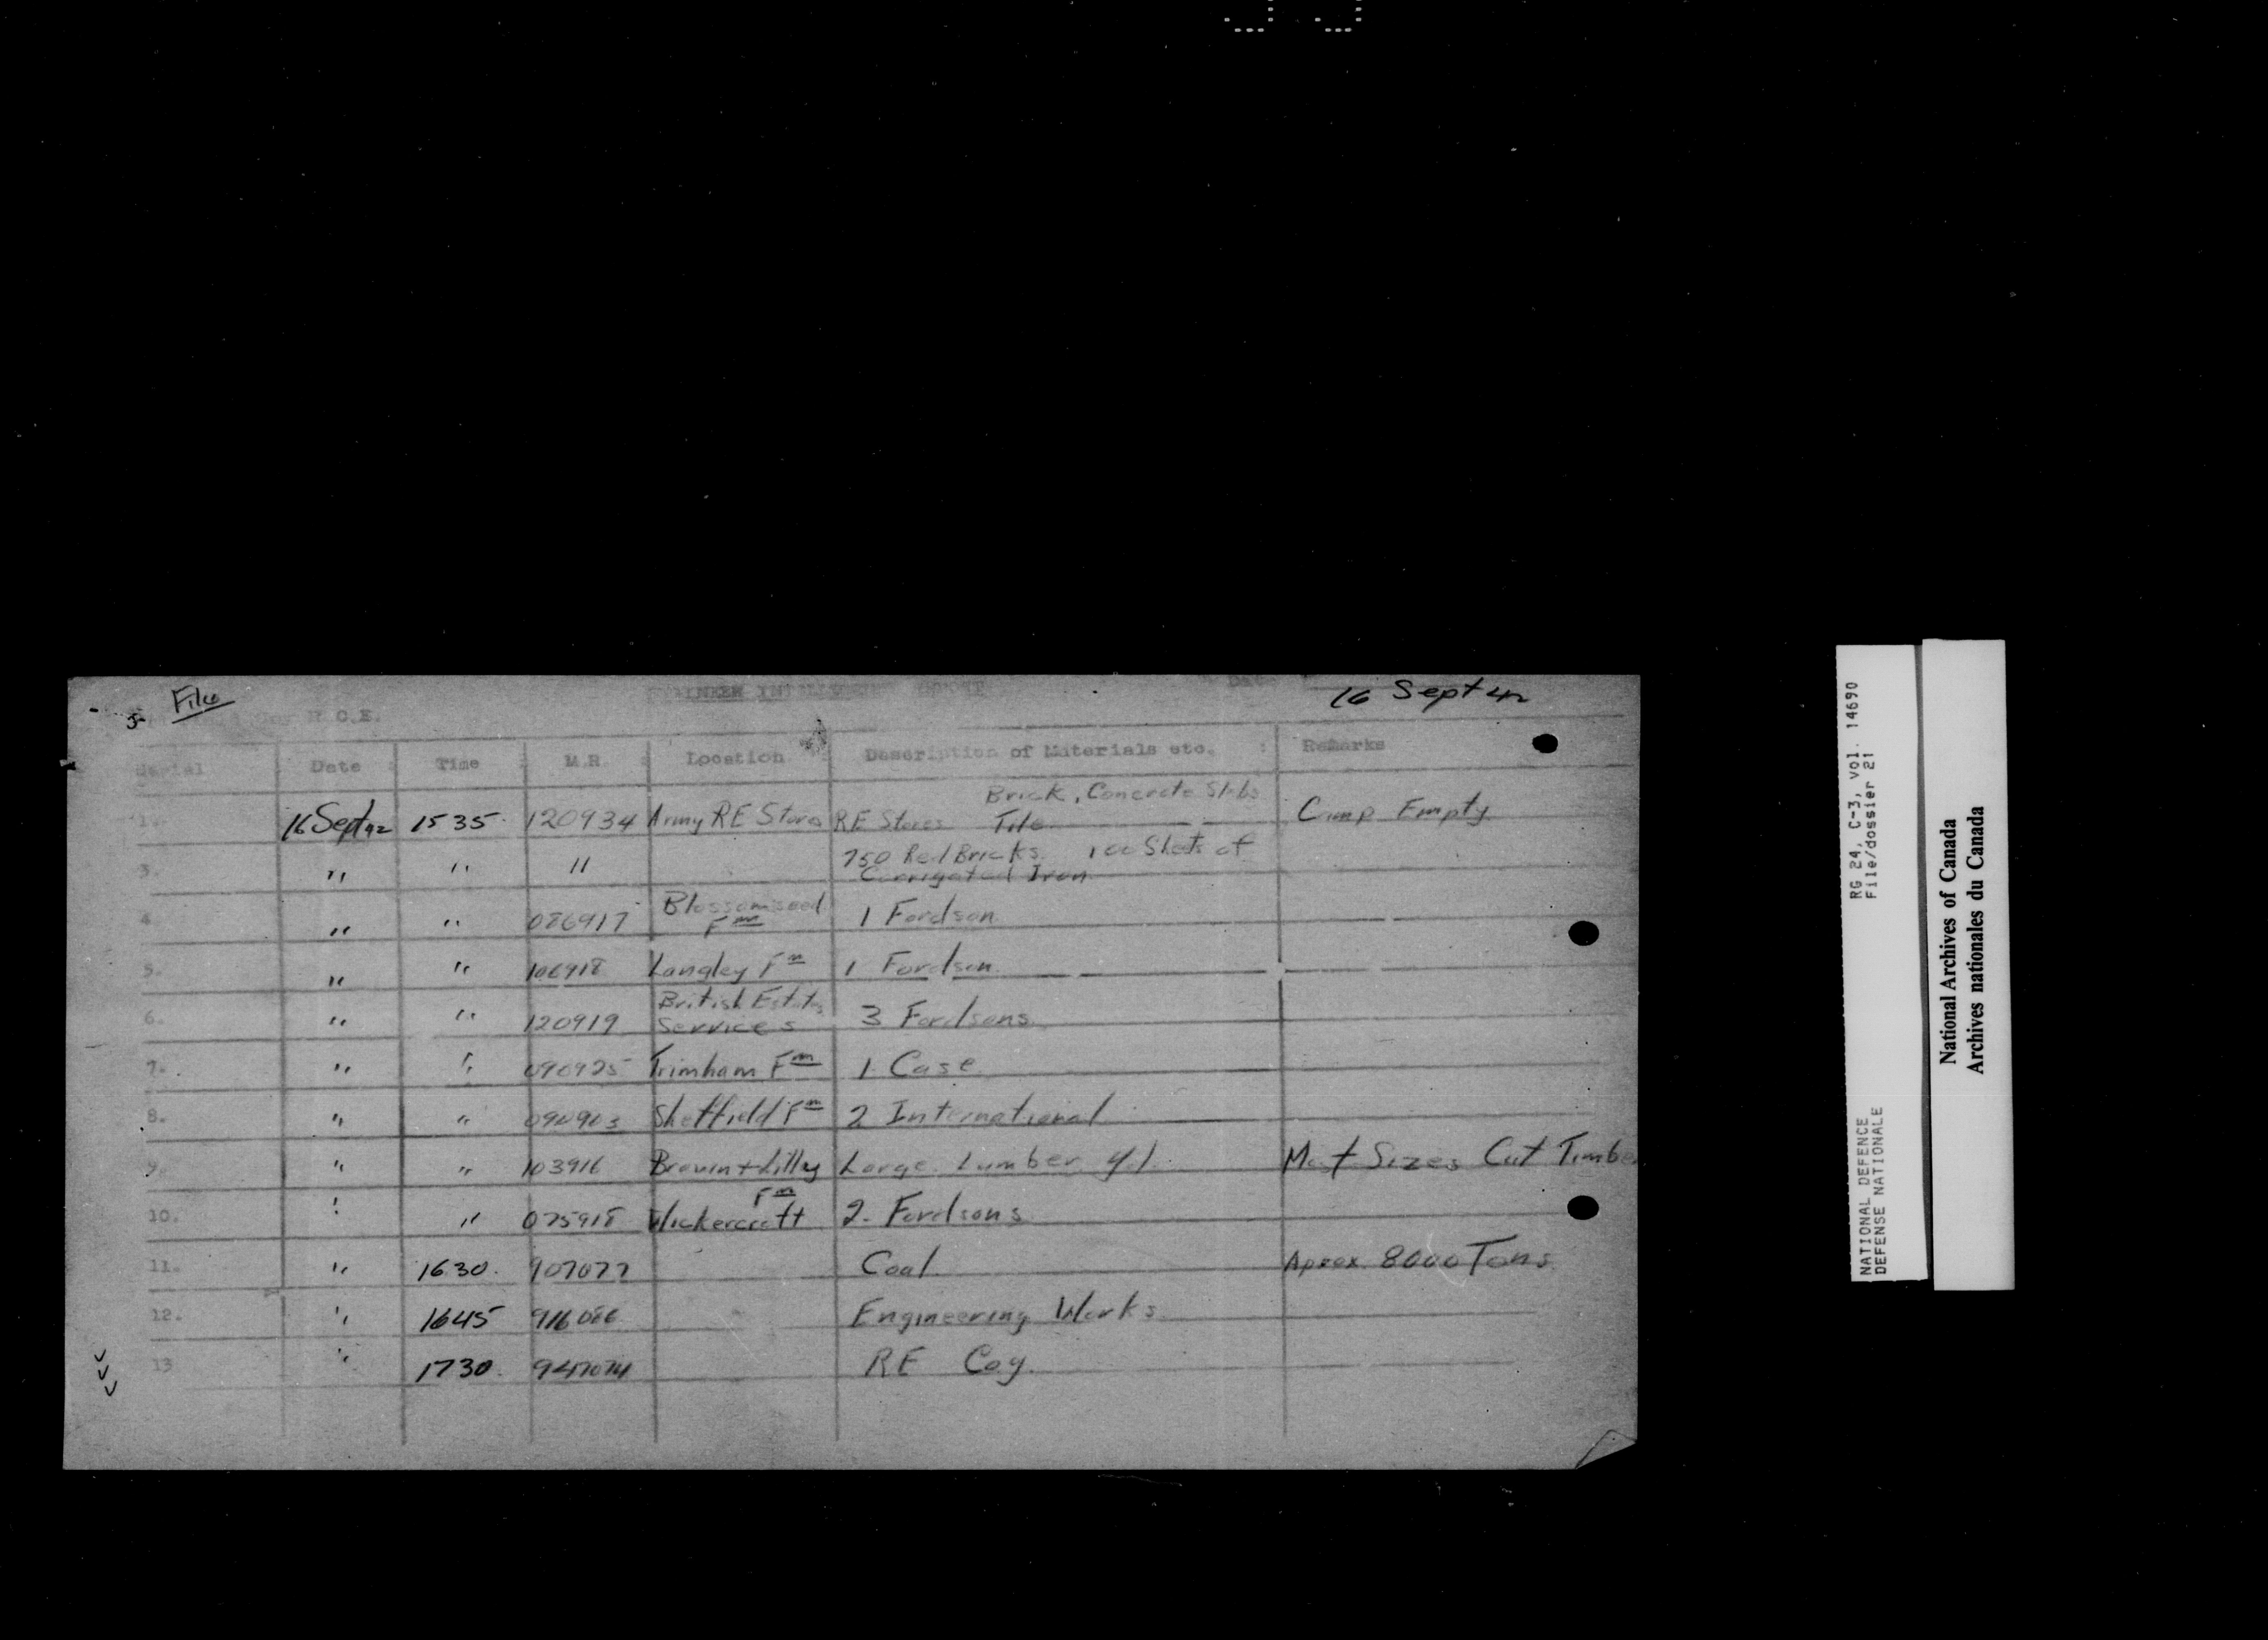 File
ENGINEER INTELLIGENCE
Date 16 Sept 42
R.C.E.
Serial Date Time M.R. Location Description of Materials etc. Remarks
Brick, Concrete Slabs
1. 16 Sept 42 1535 120934 Army RE Stores RE Stores Tile Camp Empty
750 Red Bricks 100 Sheets of
3. " " " Corrigated Iron
4. " " 086917 Blossomseed Fm 1 Fordson
5. " " 106918 Langley Fm 1 Fordson
6. " " 120919 British Estates Services 3 Fordsons
7. " " 090925 Trimham Fm 1 Case
8. " " Sheffield Fm 2 International
9. " " 103916 Brown + Lilley Large Lumber yd. Most Sizes Cut Timber
10. " " 075918 Wickercroft Fm 2. Fordsons
11. " 1630. 907077 Coal Aprox. 8000 Tons
12. " 1645 916086 Engineering Works
13 " 1730. RE Coy.
RG 24, C-3, vol. 14690
File/dossier 21
NATIONAL DEFENCE
DEFENSE NATIONALE
National Archives of Canada
Archives nationales du Canada